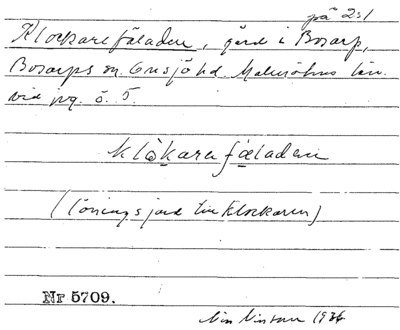 på 2:1
Klockarefäladen, gård i Bosarp,
Bosarps sn. Onsjö hd. Malmöhus län.
vid jvg. ö. 5.
klåkarefæladen
(löningsjord till klockaren)
Nr 5709.
1936